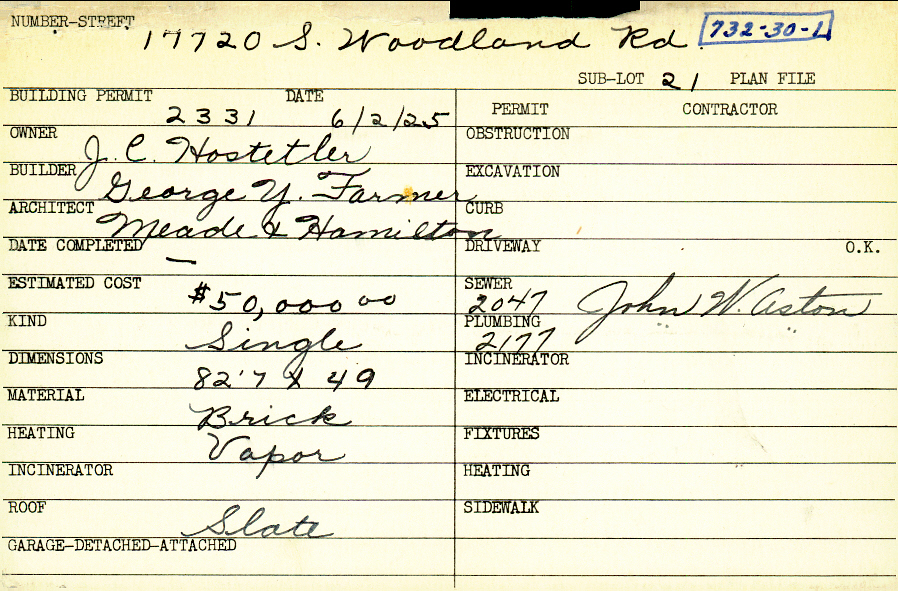 NUMBER-STREET
17720 S. Woodland Rd. 732-30-1
SUB-LOT 21 PLAN FILE
BUILDING PERMIT DATE
2331 6/2/25
PERMIT CONTRACTOR
OWNER
J. C. Hostetler
OBSTRUCTION
BUILDER
George Y. Farmer
EXCAVATION
ARCHITECT
Meade & Hamilton
CURB
DATE COMPLETED
—
DRIVEWAY O.K.
ESTIMATED COST
$50,000 00
SEWER
2047 John W. Aston
KIND
Single
PLUMBING
2177 " "
DIMENSIONS
82'7 X 49
INCINERATOR
MATERIAL
Brick
ELECTRICAL
HEATING
Vapor
FIXTURES
INCINERATOR
HEATING
ROOF
Slate
SIDEWALK
GARAGE-DETACHED-ATTACHED